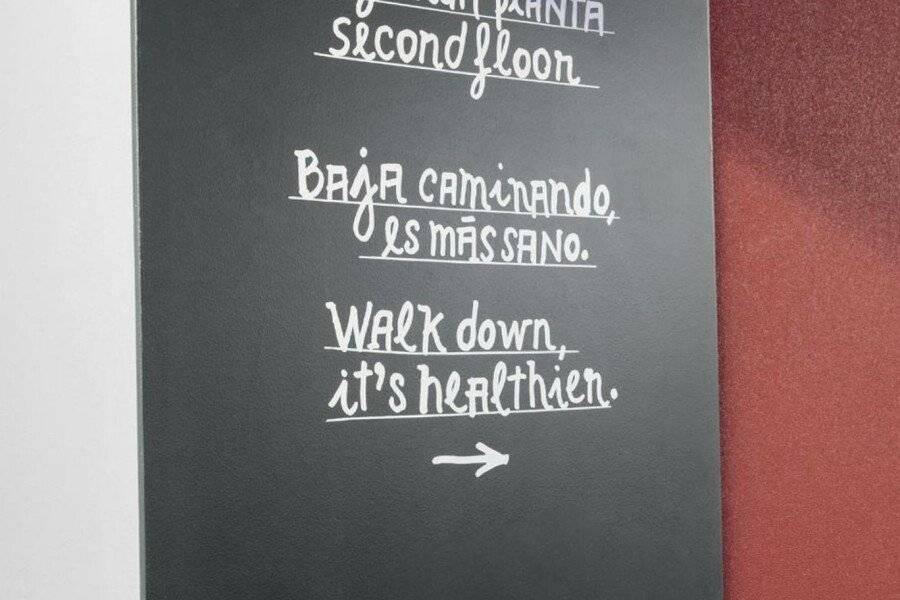 PLANTA
Second floor
Baja caminando,
es más sano.
Walk down,
it's healthier.